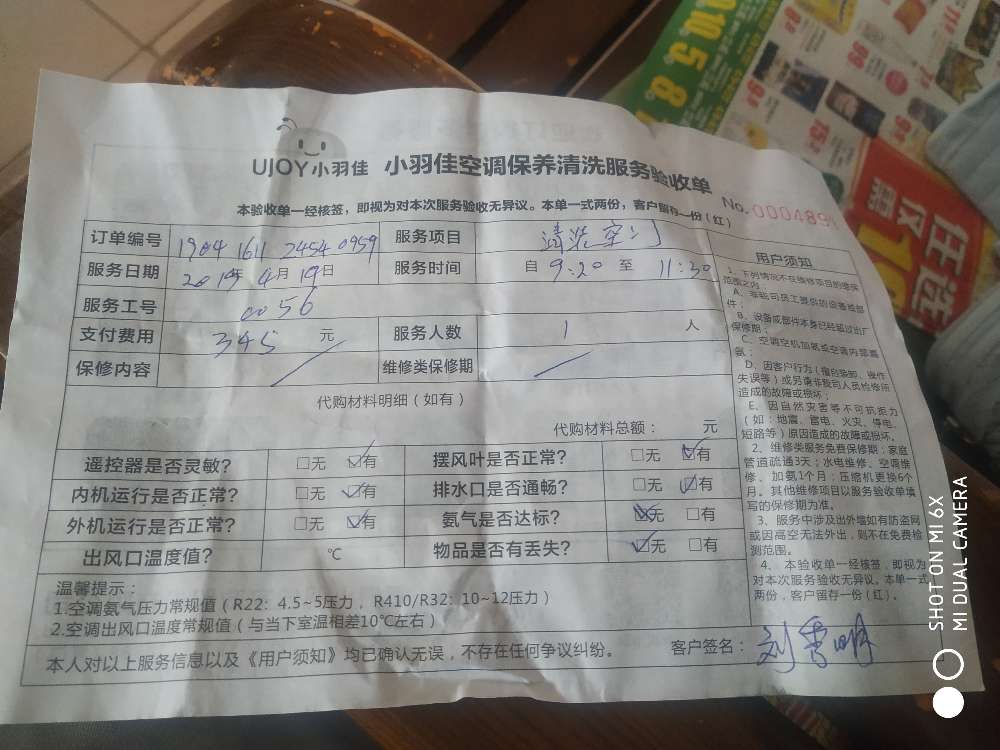 UJOY小羽佳 小羽佳空调保养清洗服务验收单
No.000489
本验收单一经核签，即视为对本次服务验收无异议。本单一式两份，客户留存一份（红）
订单编号 1904 1611 2454 0959 服务项目 清洗空门
服务日期 2019年4月19日 服务时间 自 9:20 至 11:30
服务工号 0056
支付费用 345 元 服务人数 1 人
保修内容 维修类保修期
代购材料明细（如有）
代购材料总额： 元
遥控器是否灵敏？ □无 ☑有 摆风叶是否正常？ □无 ☑有
内机运行是否正常？ □无 ☑有 排水口是否通畅？ □无 ☑有
外机运行是否正常？ □无 ☑有 氨气是否达标？ ☑无 □有
出风口温度值？ ℃ 物品是否有丢失？ ☑无 □有
温馨提示：
1.空调氨气压力常规值（R22：4.5~5压力，R410/R32：10~12压力）
2.空调出风口温度常规值（与当下室温相差10℃左右）
本人对以上服务信息以及《用户须知》均已确认无误，不存在任何争议纠纷。 客户签名：刘雪明
用户须知
1、下列情况不在维修项目的维保
范围之内：
A、非我司员工提供的设备或部
件；
B、设备或部件本身已经超过出厂
保修期；
C、空调空机加氨或空调内部漏
氨；
D、因客户行为（擅自拆卸、操作
失误等）或另请非我司人员检修所
造成的故障或损坏；
E、因自然灾害等不可抗拒力
（如：地震、雷电、火灾、停电、
短路等）原因造成的故障或损坏。
2、维修类服务免费保修期：家庭
管道疏通3天；水电维修、空调维
修、加氨1个月；压缩机更换6个
月。其他维修项目以服务验收单填
写的保修期为准。
3、服务中涉及出外墙如有防盗网
或因高空无法外出，则不在免费检
测范围。
4、本验收单一经核签，即视为
对本次服务验收无异议。本单一式
两份，客户留存一份（红）。
任选
仅
SHOT ON MI 6X
MI DUAL CAMERA